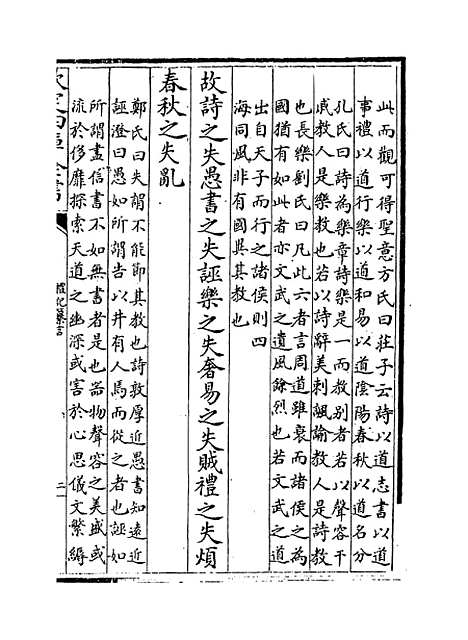 此而觀可得聖意方氏曰莊子云詩以道志書以道
事禮以道行樂以道和易以道陰陽春秋以道名分
孔氏曰詩為樂章詩樂是一而教别者若以聲容干
戚教人是樂教也若以詩辭美刺諷諭教人是詩教
也長樂劉氏曰凡此六者言周道雖衰而諸侯之為
國猶有如此者亦文武之遺風餘烈也若文武之道
出自天子而行之諸侯則四
海同風非有國異其教也
故詩之失愚書之失誣樂之失奢易之失賊禮之失煩
春秋之失亂
鄭氏曰失謂不能節其教也詩敦厚近愚書知遠近
誣澄曰愚如所謂告以井有人焉而從之者也誣如
所謂盡信書不如無書者是也器物聲容之美盛或
流於侈靡探索天道之幽深或害於心思儀文繁縟
欽定四庫全書
禮記纂言
二